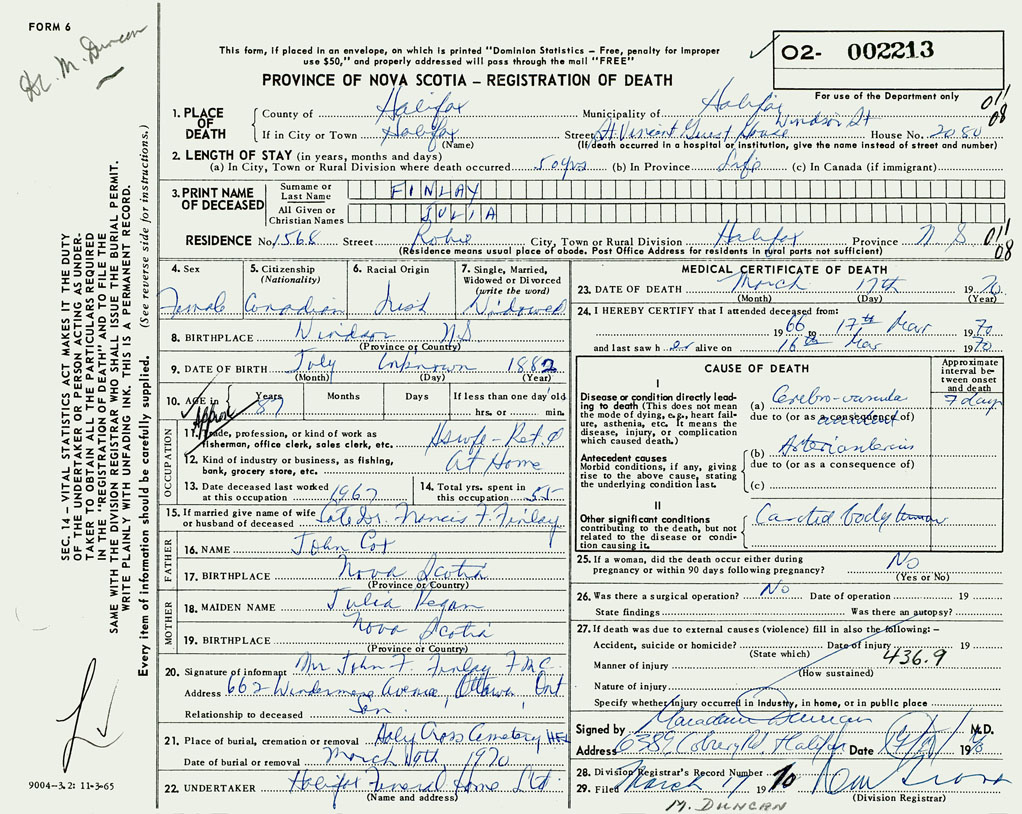 FORM 6
Dr. M. Duncan
This form, if placed in an envelope, on which is printed "Dominion Statistics – Free, penalty for improper
use $50," and properly addressed will pass through the mail "FREE"
O2- 002213
For use of the Department only
PROVINCE OF NOVA SCOTIA – REGISTRATION OF DEATH
011
08
1. PLACE OF DEATH
County of Halifax Municipality of Halifax
Windsor St
If in City or Town Halifax Street St Vincent Guest House House No. 2080
(Name) (If death occurred in a hospital or institution, give the name instead of street and number)
2. LENGTH OF STAY (in years, months and days)
(a) In City, Town or Rural Division where death occurred 50 yrs (b) In Province Life (c) In Canada (if immigrant)
3. PRINT NAME OF DECEASED
Surname or Last Name FINLAY
All Given or Christian Names JULIA
RESIDENCE No. 1568 Street Robie City, Town or Rural Division Halifax Province N S
011
08
(Residence means usual place of abode. Post Office Address for residents in rural parts not sufficient)
4. Sex 5. Citizenship (Nationality) 6. Racial Origin 7. Single, Married, Widowed or Divorced (write the word)
Female Canadian Irish Widowed
8. BIRTHPLACE Windsor N.S
(Province or Country)
9. DATE OF BIRTH July Unknown 1882
(Month) (Day) (Year)
10. AGE in Years Months Days If less than one day old
Approx 87 hrs. or min.
OCCUPATION
11. Trade, profession, or kind of work as fisherman, office clerk, sales clerk, etc. Hswfe - Ret'd
12. Kind of industry or business, as fishing, bank, grocery store, etc. At Home
13. Date deceased last worked at this occupation 1967 14. Total yrs. spent in this occupation 55
15. If married give name of wife or husband of deceased Late Dr. Francis F. Finlay
FATHER
16. NAME John Cox
17. BIRTHPLACE Nova Scotia
(Province or Country)
MOTHER
18. MAIDEN NAME Julia
19. BIRTHPLACE Nova Scotia
(Province or Country)
20. Signature of informant Mr. John F. Finlay
Address 662 Windermere Avenue, Ottawa, Ont
Relationship to deceased Son
21. Place of burial, cremation or removal Holy Cross Cemetery HFX
Date of burial or removal March 1970
22. UNDERTAKER Halifax Funeral Home Ltd
(Name and address)
MEDICAL CERTIFICATE OF DEATH
23. DATE OF DEATH March 17th 1970
(Month) (Day) (Year)
24. I HEREBY CERTIFY that I attended deceased from:
1966 to 17th Mar 1970
and last saw h er alive on 16th Mar 1970
CAUSE OF DEATH
Approximate interval between onset and death
I
Disease or condition directly leading to death (This does not mean the mode of dying, e.g., heart failure, asthenia, etc. It means the disease, injury, or complication which caused death.)
(a) Cerebro-vascular accident 7 days
due to (or as a consequence of)
Antecedent causes
Morbid conditions, if any, giving rise to the above cause, stating the underlying condition last.
(b) Arteriosclerosis
due to (or as a consequence of)
(c)
II
Other significant conditions contributing to the death, but not related to the disease or condition causing it.
Carotid body tumour
25. If a woman, did the death occur either during pregnancy or within 90 days following pregnancy? No
(Yes or No)
26. Was there a surgical operation? No Date of operation 19
State findings Was there an autopsy?
27. If death was due to external causes (violence) fill in also the following: –
Accident, suicide or homicide? Date of injury 19
(State which)
Manner of injury 436.9
(How sustained)
Nature of injury
Specify whether injury occurred in Industry, in home, or in public place
Signed by Duncan M.D.
Address 6389 Coburg Rd Halifax Date 1970
28. Division Registrar's Record Number
29. Filed March 17 1970
(Division Registrar)
M. DUNCAN
SEC. 14 – VITAL STATISTICS ACT MAKES IT THE DUTY
OF THE UNDERTAKER OR PERSON ACTING AS UNDER-
TAKER TO OBTAIN ALL THE PARTICULARS REQUIRED
IN THE "REGISTRATION OF DEATH" AND TO FILE THE
SAME WITH THE DIVISION REGISTRAR WHO SHALL ISSUE THE BURIAL PERMIT.
WRITE PLAINLY WITH UNFADING INK. THIS IS A PERMANENT RECORD.
Every item of information should be carefully supplied. (See reverse side for instructions.)
9004–3.2: 11-3-65